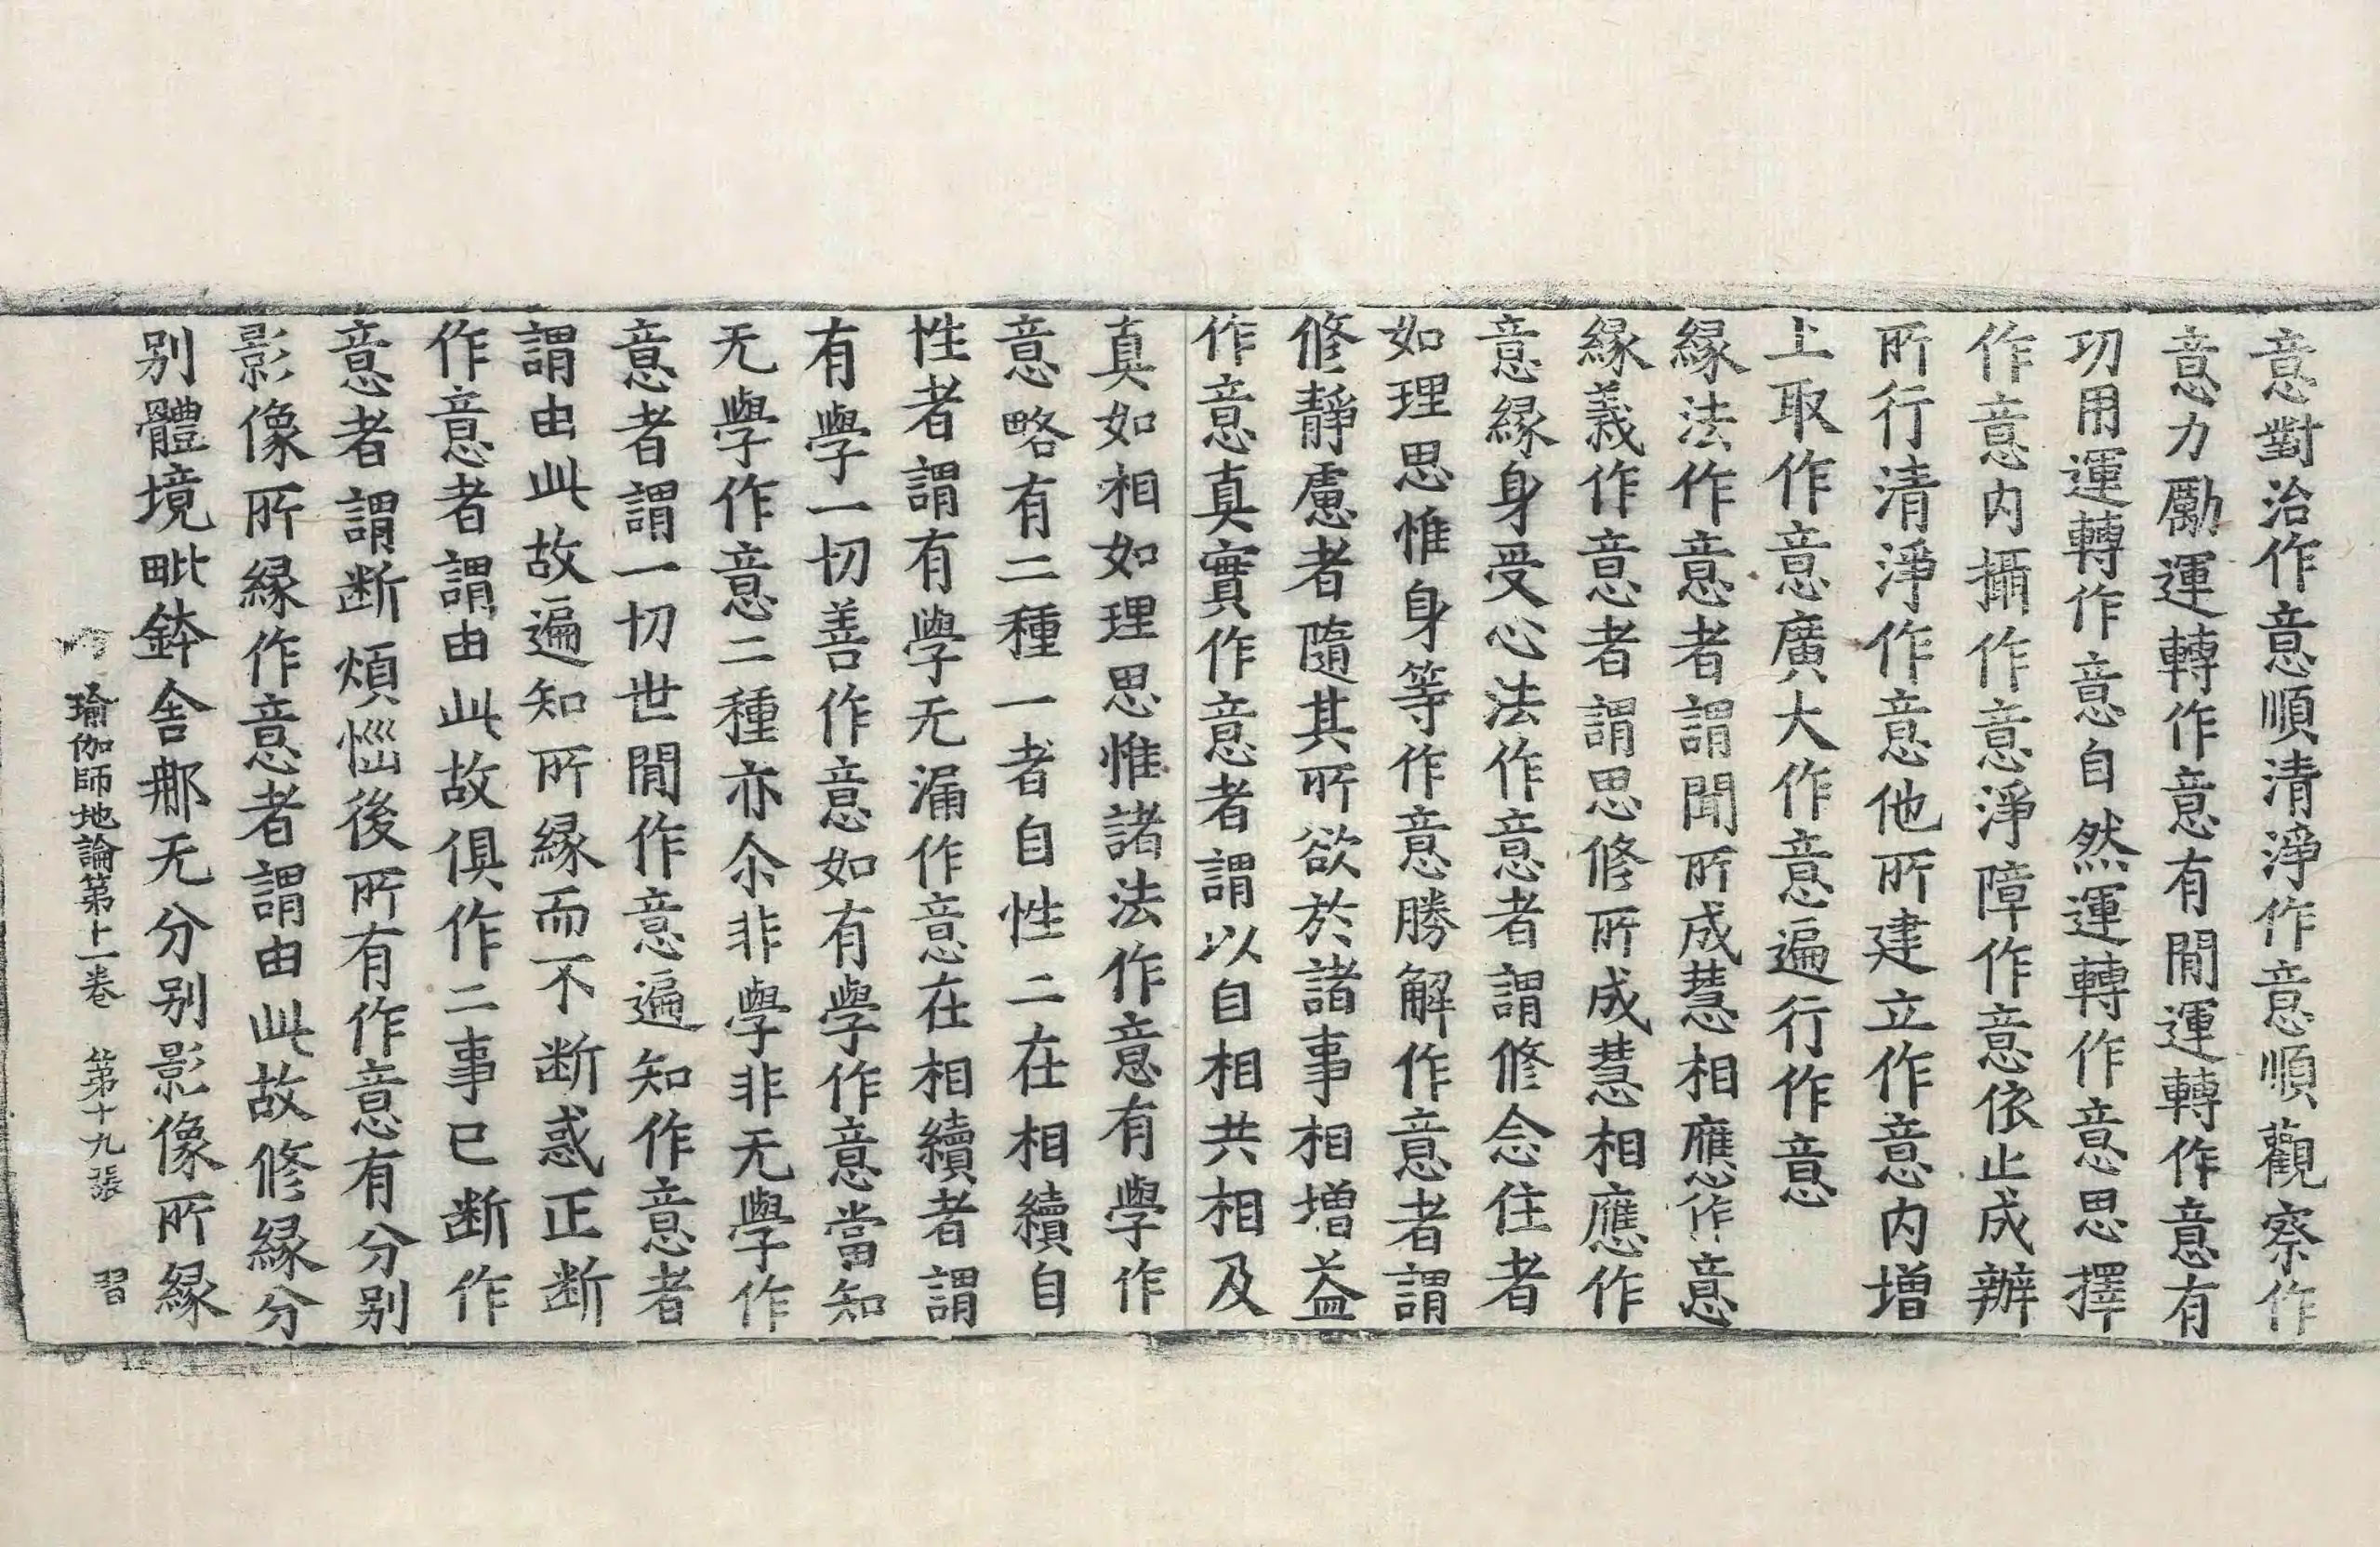 意對治作意順清淨作意順觀察作
意力勵運轉作意有間運轉作意有
功用運轉作意自然運轉作意思擇
作意内攝作意淨障作意依止成辦
所行清淨作意他所建立作意内增
上取作意廣大作意遍行作意
緣法作意者謂聞所成慧相應作意
緣義作意者謂思修所成慧相應作
意緣身受心法作意者謂修念住者
如理思惟身等作意勝解作意者謂
修靜慮者隨其所欲於諸事相增益
作意真實作意者謂以自相共相及
真如相如理思惟諸法作意有學作
意略有二種一者自性二在相續自
性者謂有學无漏作意在相續者謂
有學一切善作意如有學作意當知
无學作意二種亦尒非學非无學作
意者謂一切世間作意遍知作意者
謂由此故遍知所緣而不断惑正断
作意者謂由此故俱作二事已断作
意者謂断煩惱後所有作意有分別
影像所緣作意者謂由此故修緣分
別體境毗鉢舍那无分別影像所緣
瑜伽師地論第十一卷 第十九張 習